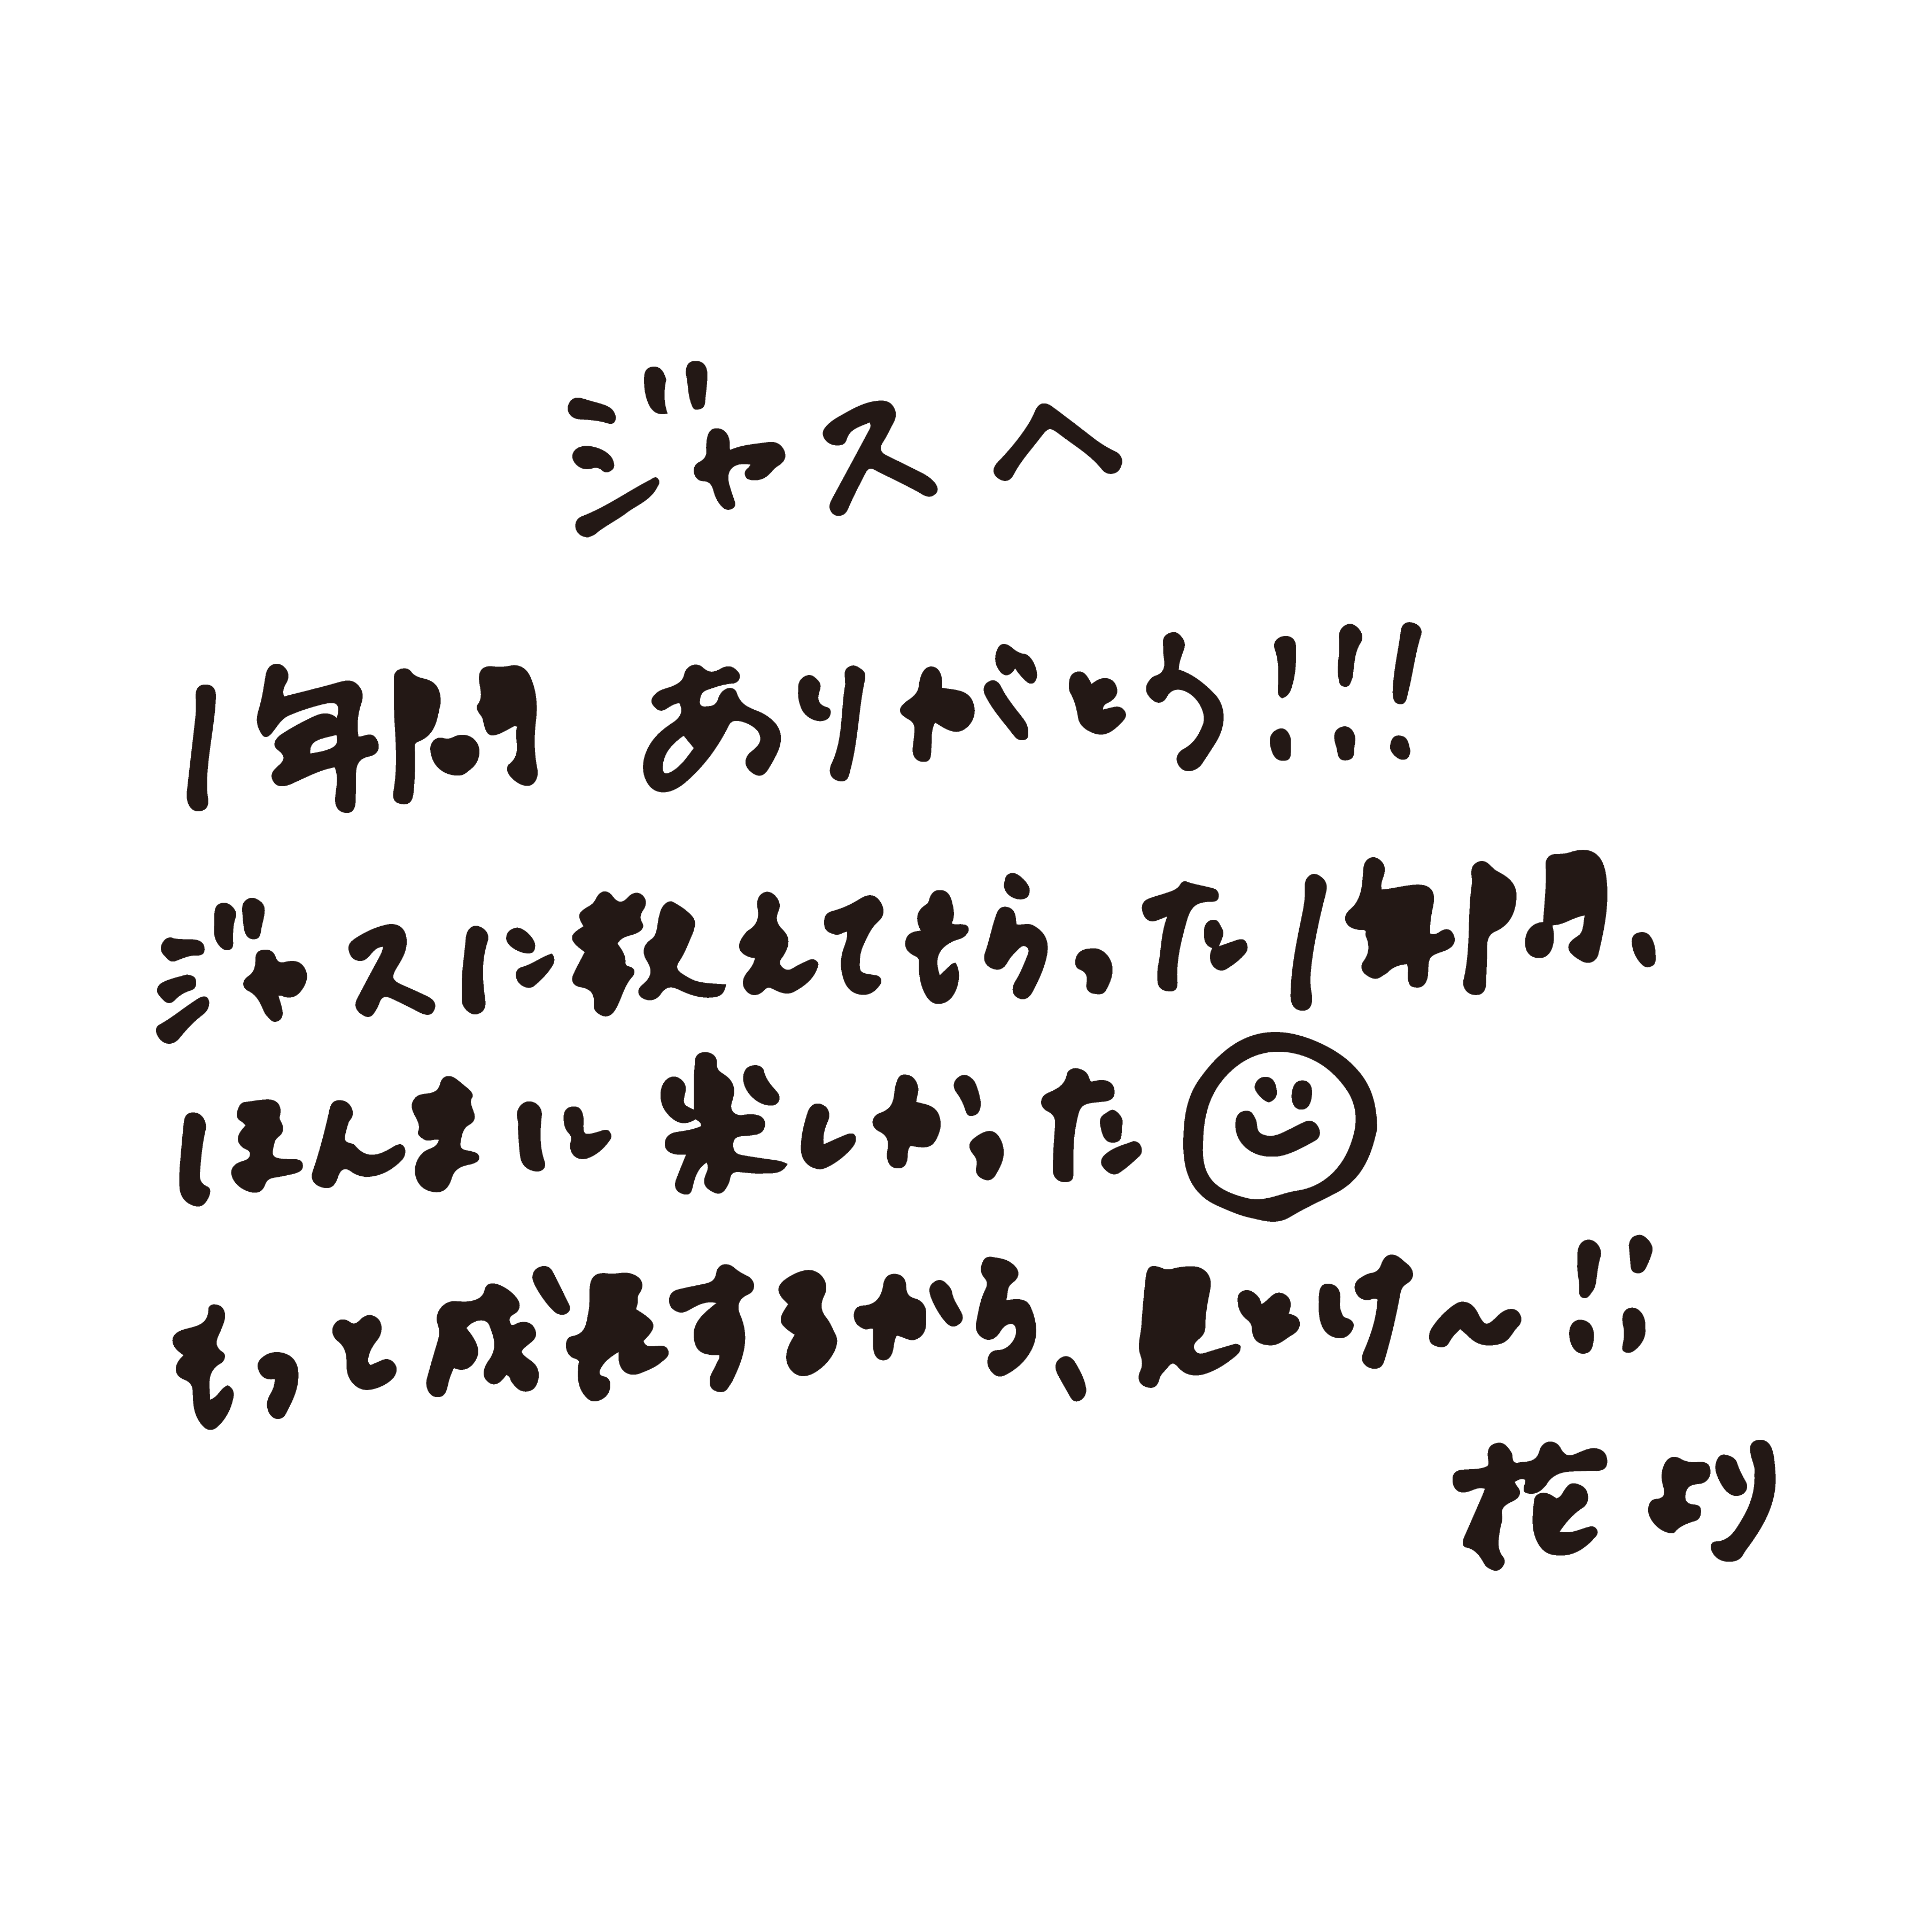 ジャスへ
1年間 ありがとう!!!
ジャスに教えてもらった1年間、
ほんまに 楽しかった
もっと成長するから、見といけ〜!!
花より